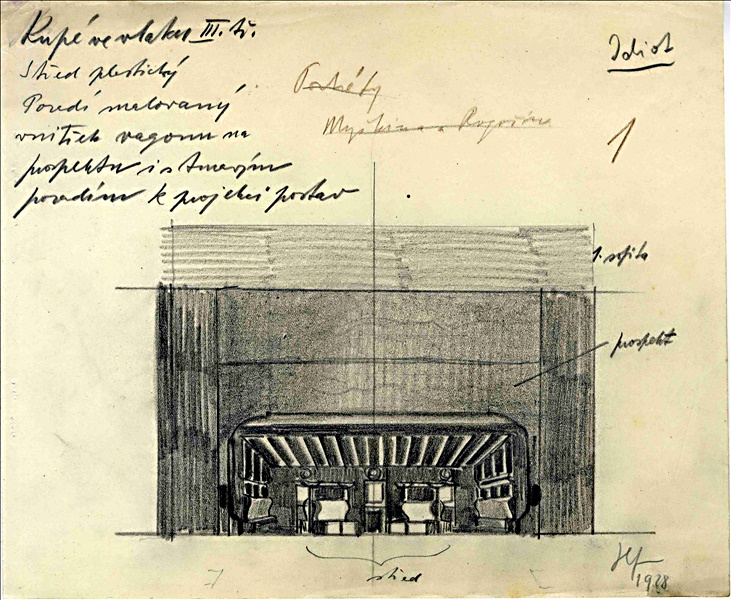 Kupé ve vlaku III. tř.
Střed plastický
Pozadí malovaný
vnitřek vagonu na
prospektu i s tmavým
pozadím k projekci postav
Idiot
Portréty
Myškina a Rogožina
1
1. sofita
prospekt
střed
1928